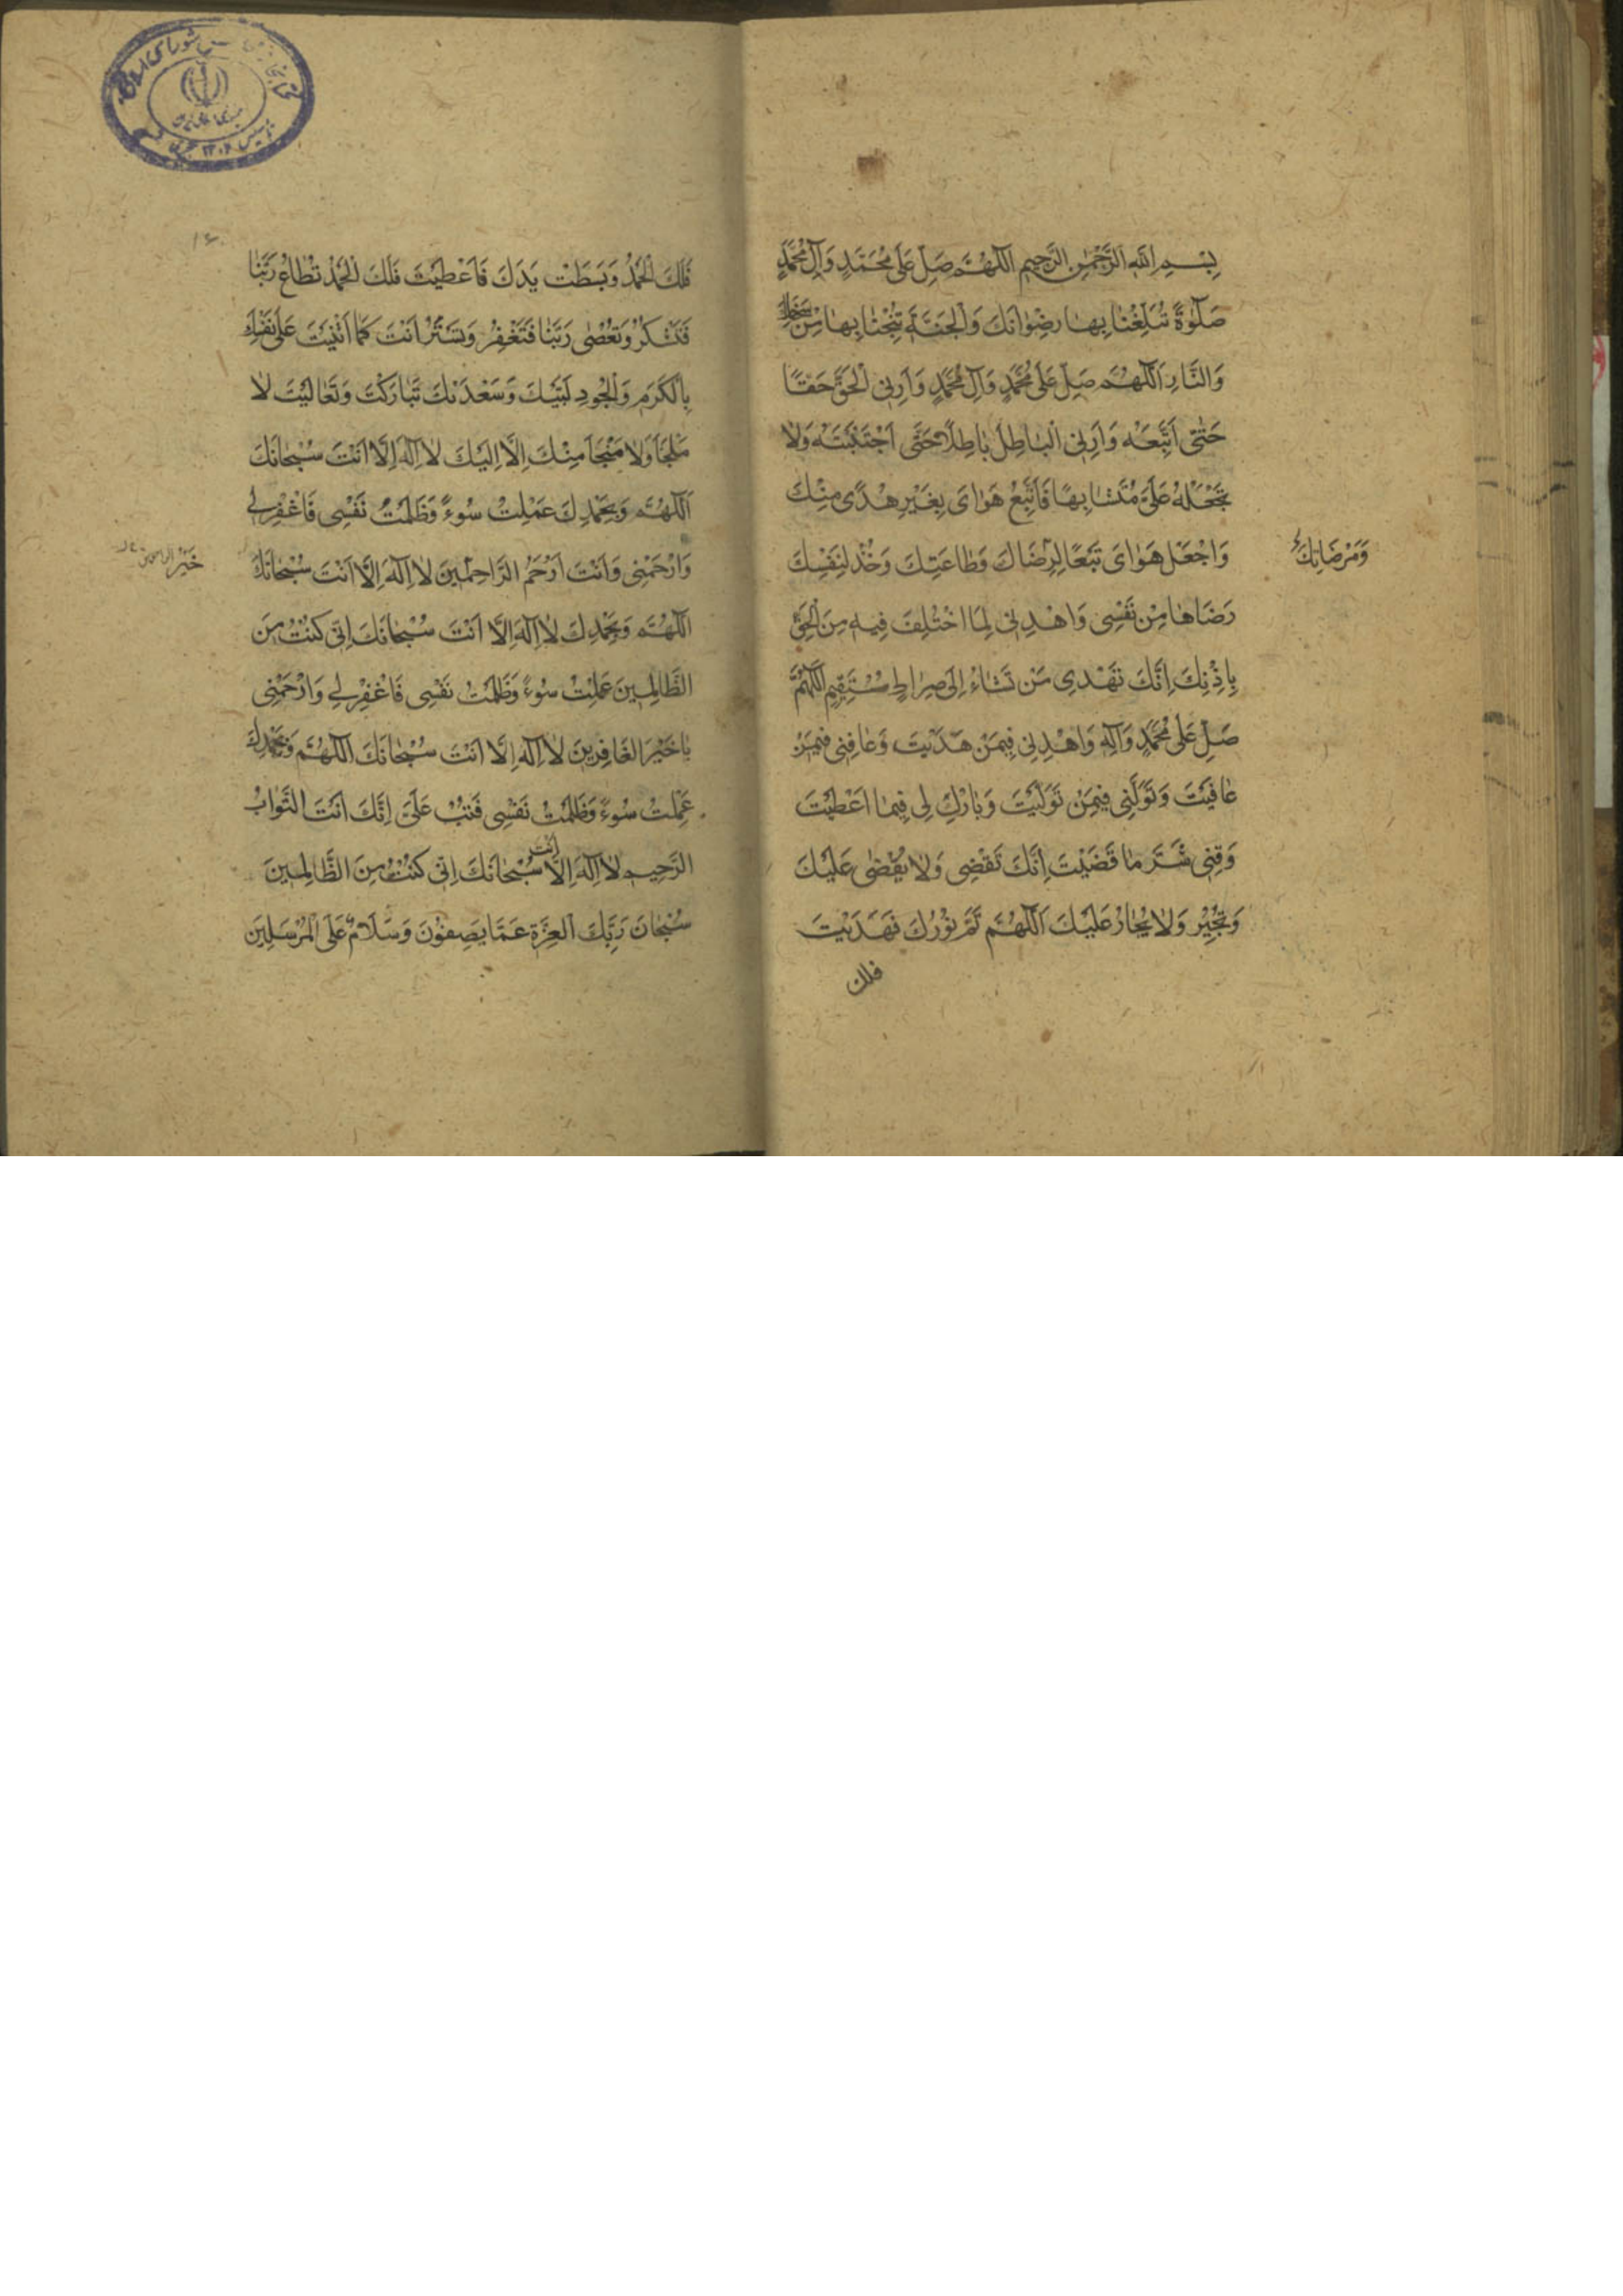 بِسْمِ اللّٰهِ الرَّحْمٰنِ الرَّحِيمِ اَللّٰهُمَّ صَلِّ عَلٰى مُحَمَّدٍ وَآلِ مُحَمَّدٍ
صَلٰوةً تُبَلِّغُنَا بِهَا رِضْوَانَكَ وَالْجَنَّةَ تُنْجِنَا بِهَا مِنْ سَخَطِكَ
وَالنَّارِ اَللّٰهُمَّ صَلِّ عَلٰى مُحَمَّدٍ وَآلِ مُحَمَّدٍ وَاَرِنِى الْحَقَّ حَقًّا
حَتّٰى اَتَّبِعَهُ وَاَرِنِى الْبَاطِلَ بَاطِلًا حَتّٰى اَجْتَنِبَهُ وَلَا
تَجْعَلْهُ عَلَىَّ مُتَشَابِهًا فَاَتَّبِعُ هَوَاىَ بِغَيْرِ هُدًى مِنْكَ
وَاجْعَلْ هَوَاىَ تَبَعًا لِرِضَاكَ وَطَاعَتِكَ وَخُذْ لِنَفْسِكَ
وَمَرْضَاتِكَ
رِضَاهَا مِنْ نَفْسِى وَاهْدِنِى لِمَا اخْتُلِفَ فِيهِ مِنَ الْحَقِّ
بِاِذْنِكَ اِنَّكَ تَهْدِى مَنْ تَشَاءُ اِلٰى صِرَاطٍ مُسْتَقِيمٍ اَللّٰهُمَّ
صَلِّ عَلٰى مُحَمَّدٍ وَآلِهِ وَاهْدِنِى فِيمَنْ هَدَيْتَ وَعَافِنِى فِيمَنْ
عَافَيْتَ وَتَوَلَّنِى فِيمَنْ تَوَلَّيْتَ وَبَارِكْ لِى فِيمَا اَعْطَيْتَ
وَقِنِى شَرَّ مَا قَضَيْتَ اِنَّكَ تَقْضِى وَلَا يُقْضٰى عَلَيْكَ
وَتُجِيْرُ وَلَا يُجَارُ عَلَيْكَ اَللّٰهُمَّ تَمَّ نُوْرُكَ فَهَدَيْتَ
فلك
فَلَكَ الْحَمْدُ وَبَسَطْتَ يَدَكَ فَاَعْطَيْتَ فَلَكَ الْحَمْدُ تُطَاعُ رَبَّنَا
فَتَشْكُرُ وَتُعْصٰى رَبَّنَا فَتَغْفِرُ وَتَسْتُرُ اَنْتَ كَمَا اَثْنَيْتَ عَلٰى نَفْسِكَ
بِالْكَرَمِ وَالْجُودِ لَبَّيْكَ وَسَعْدَيْكَ تَبَارَكْتَ وَتَعَالَيْتَ لَا
مَلْجَأَ وَلَا مَنْجَأَ مِنْكَ اِلَّا اِلَيْكَ لَا اِلٰهَ اِلَّا اَنْتَ سُبْحَانَكَ
اَللّٰهُمَّ وَبِحَمْدِكَ عَمِلْتُ سُوءً وَظَلَمْتُ نَفْسِى فَاغْفِرْ لِى
وَارْحَمْنِى وَاَنْتَ اَرْحَمُ الرَّاحِمِيْنَ لَا اِلٰهَ اِلَّا اَنْتَ سُبْحَانَكَ
خَيْرُ الراحمين
اَللّٰهُمَّ وَبِحَمْدِكَ لَا اِلٰهَ اِلَّا اَنْتَ سُبْحَانَكَ اِنِّى كُنْتُ مِنَ
الظَّالِمِينَ عَمِلْتُ سُوءً وَظَلَمْتُ نَفْسِى فَاغْفِرْ لِى وَارْحَمْنِى
يَا خَيْرَ الْغَافِرِينَ لَا اِلٰهَ اِلَّا اَنْتَ سُبْحَانَكَ اَللّٰهُمَّ وَبِحَمْدِكَ
عَمِلْتُ سُوءً وَظَلَمْتُ نَفْسِى فَتُبْ عَلَىَّ اِنَّكَ اَنْتَ التَّوَابُ
الرَّحِيمِ لَا اِلٰهَ اِلَّا اَنْتَ سُبْحَانَكَ اِنِّى كُنْتُ مِنَ الظَّالِمِينَ
سُبْحَانَ رَبِّكَ الْعِزَّةِ عَمَّا يَصِفُوْنَ وَسَلَامٌ عَلَى الْمُرْسَلِيْنَ